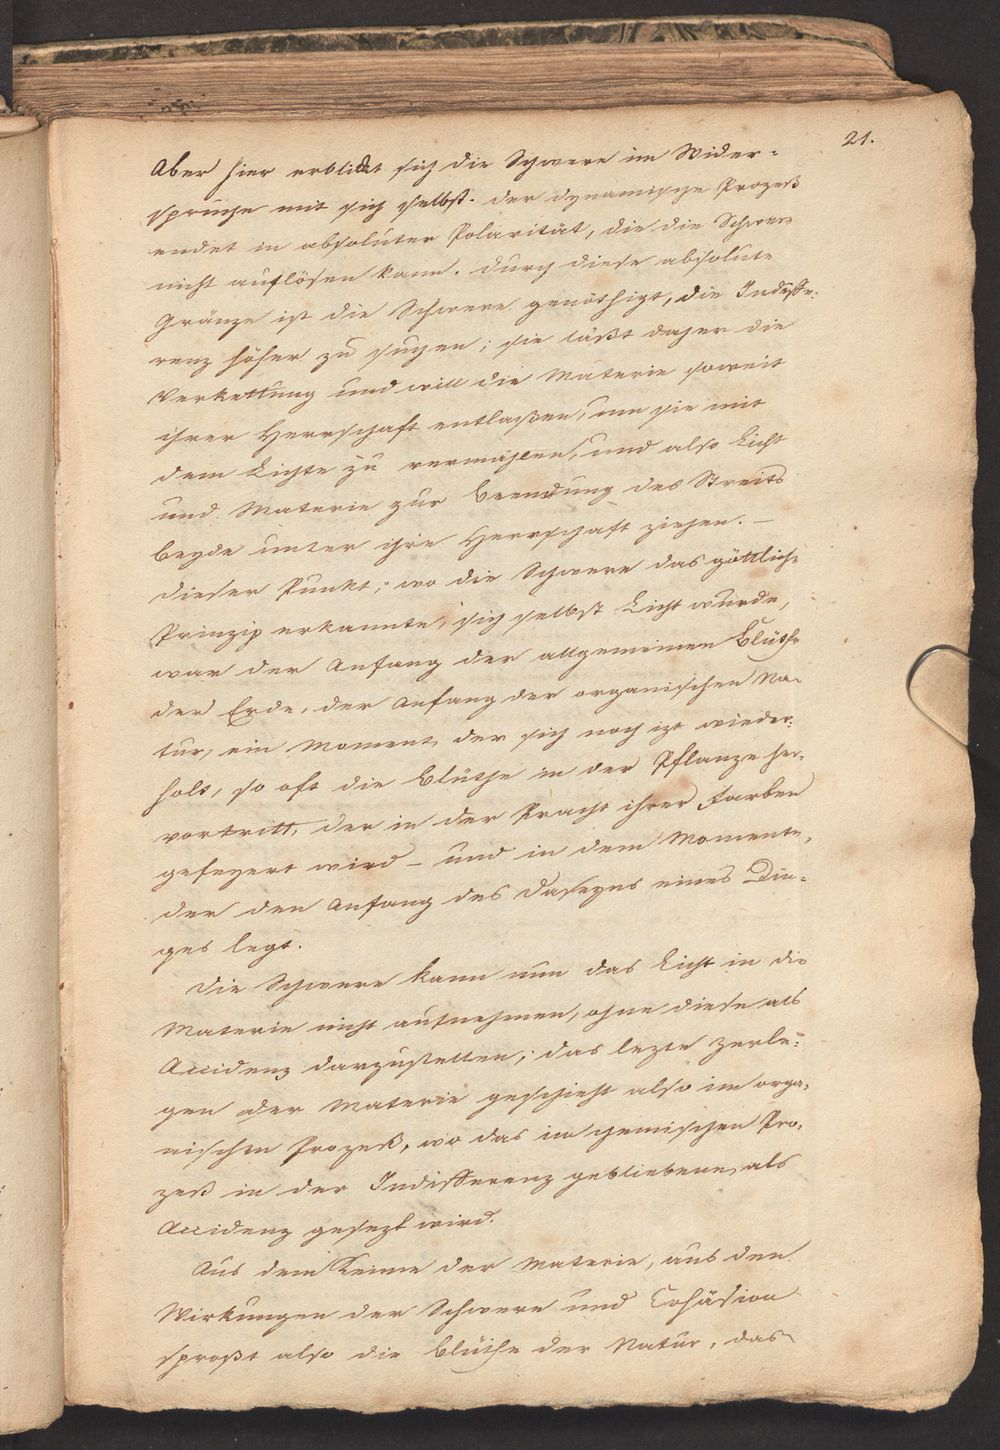 21.
Aber hier erblickt sich die Schwere im Wider-
spruche mit sich selbst. Der dynamische Prozeß
endet in absoluter Polarität, die die Schwere
nicht auflösen kann. Durch diese absolute
Gränze ist die Schwere genöthigt, die Indiffe-
renz höher zu suchen; sie läßt daher die
Verkettung und will die Materie soweit
ihrer Herrschaft entlaßen, um sie mit
dem Lichte zu vermählen, und also Licht
und Materie zur Beendung des Streits
beyde unter ihre Herrschaft ziehen. —
Dieser Punkt, wo die Schwere das göttliche
Prinzip erkannte, sich selbst Licht wurde,
war der Anfang der allgemeinen Blüthe
der Erde, der Anfang der organischen Na-
tur, ein Moment, der sich noch izt wieder-
holt, so oft die Blüthe in der Pflanze her-
vortritt, der in der Pracht ihrer Farben
gefeyert wird – und in dem Momente,
der den Anfang des Daseyns eines Din-
ges legt.
Die Schwere kann nun das Licht in die
Materie nicht aufnehmen, ohne diese als
Accidenz darzustellen; das lezte Zerle-
gen der Materie geschieht also im orga-
nischen Prozeß, wo das im chemischen Pro-
zeß in der Indifferenz gebliebene, als
Accidenz gesezt wird.
Aus dem Keime der Materie, aus den
Wirkungen der Schwere und Cohäsion
sproßt also die Blüthe der Natur, das